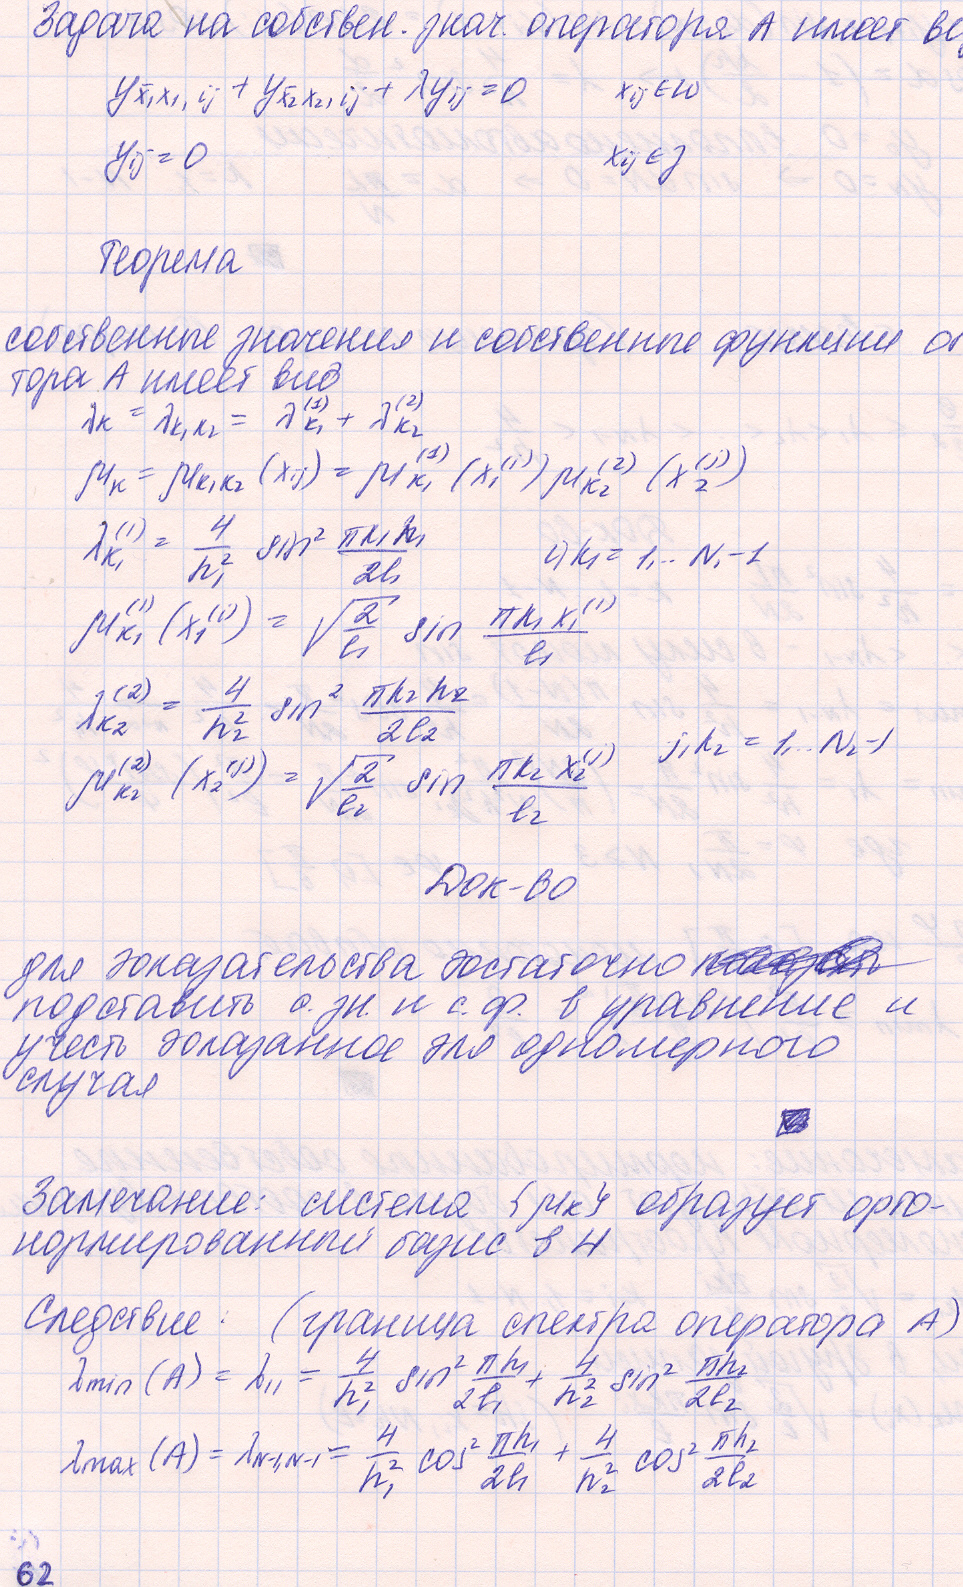 Задача на собствен. знач. оператора A имеет вид
y_{x̄₁x₁, ij} + y_{x̄₂x₂, ij} + λy_{ij} = 0   x_{ij} ∈ ω
y_{ij} = 0   x_{ij} ∈ γ
Теорема
собственные значения и собственные функции оп
тора A имеет вид
λ_k = λ_{k₁k₂} = λ_{k₁}^{(1)} + λ_{k₂}^{(2)}
μ_k = μ_{k₁k₂}(x_{ij}) = μ_{k₁}^{(1)}(x₁^{(i)}) μ_{k₂}^{(2)}(x₂^{(j)})
λ_{k₁}^{(1)} = 4/h₁² sin² πk₁h₁/2l₁   i, k₁ = 1,.. N₁-1
μ_{k₁}^{(1)}(x₁^{(i)}) = √(2/l₁) sin πk₁x₁^{(i)}/l₁
λ_{k₂}^{(2)} = 4/h₂² sin² πk₂h₂/2l₂
j, k₂ = 1,.. N₂-1
μ_{k₂}^{(2)}(x₂^{(j)}) = √(2/l₂) sin πk₂x₂^{(j)}/l₂
Док-во
для доказательства достаточно
подставить с. зн. и с. ф. в уравнение и
учесть доказанное для одномерного
случая
Замечание: система {μ_k} образует орто-
нормированный базис в H
Следствие: (граница спектра оператора A)
λ_{min}(A) = λ_{11} = 4/h₁² sin² πh₁/2l₁ + 4/h₂² sin² πh₂/2l₂
λ_{max}(A) = λ_{N-1,N-1} = 4/h₁² cos² πh₁/2l₁ + 4/h₂² cos² πh₂/2l₂
62